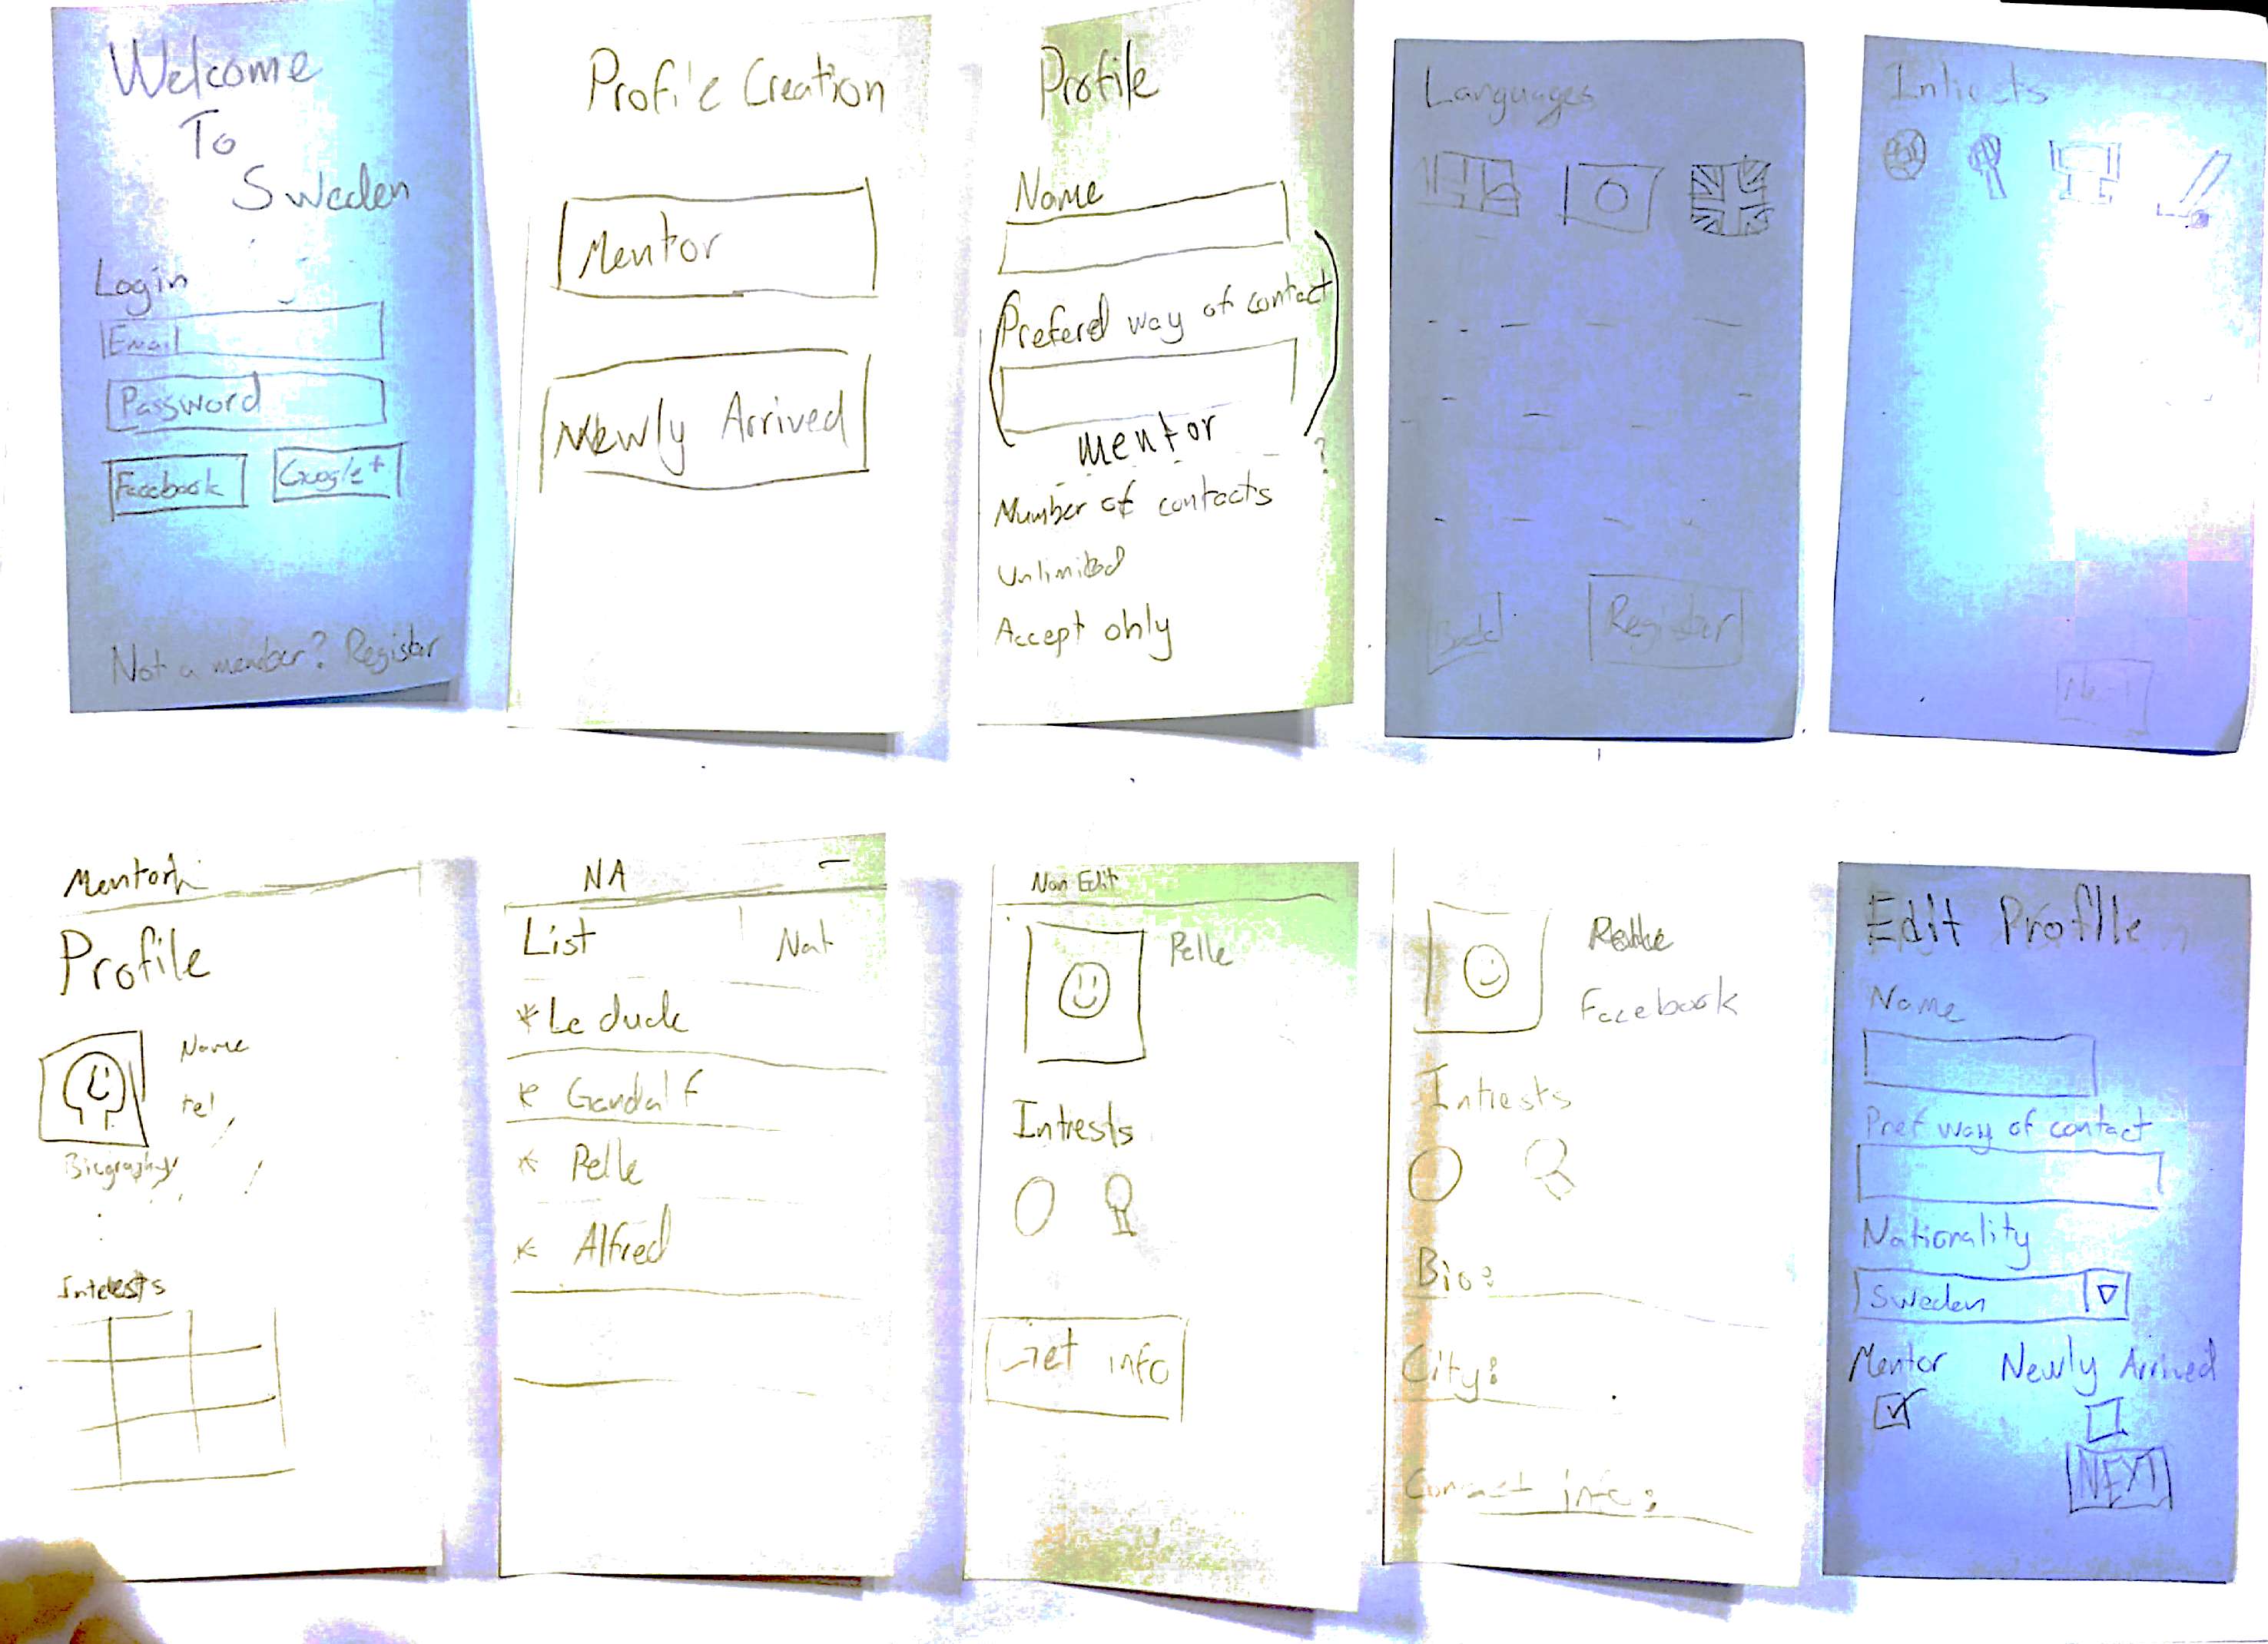 Welcome
To
Sweden
Login
Email
Password
Facebook Google+
Not a member? Register
Profile Creation
Mentor
Newly Arrived
Profile
Name
Prefered way of contact
mentor
?
Number of contacts
Unlimited
Accept only
Languages
Register
Intrests
Next
Mentor
Profile
Name
tel
Biography
Interests
NA
List Nat
*Le duck
* Gandalf
* Pelle
* Alfred
Non Edit
Pelle
Intrests
Get info
Facebook
Intrests
Bio:
City:
Contact info:
Edit Profile
Name
Pref way of contact
Nationality
Sweden
Mentor Newly Arrived
NEXT